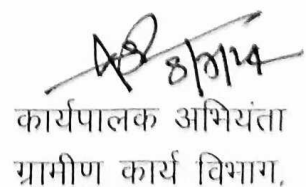 8/8/24
कार्यपालक अभियंता
ग्रामीण कार्य विभाग,